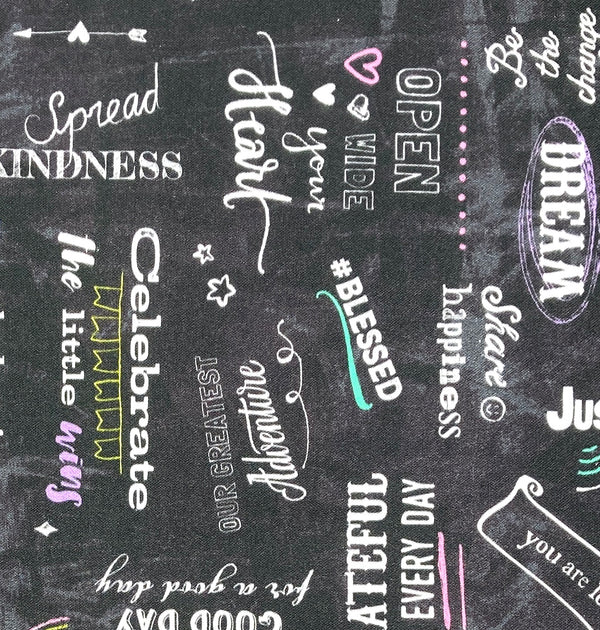 Spread
KINDNESS
OPEN
WIDE
your
Heart
Be
the
change
DREAM
Celebrate
the little wins
#BLESSED
Share
happiness
OUR GREATEST
Adventure
Jus
ATEFUL
EVERY DAY
you are lo
GOOD DAY
for a good day